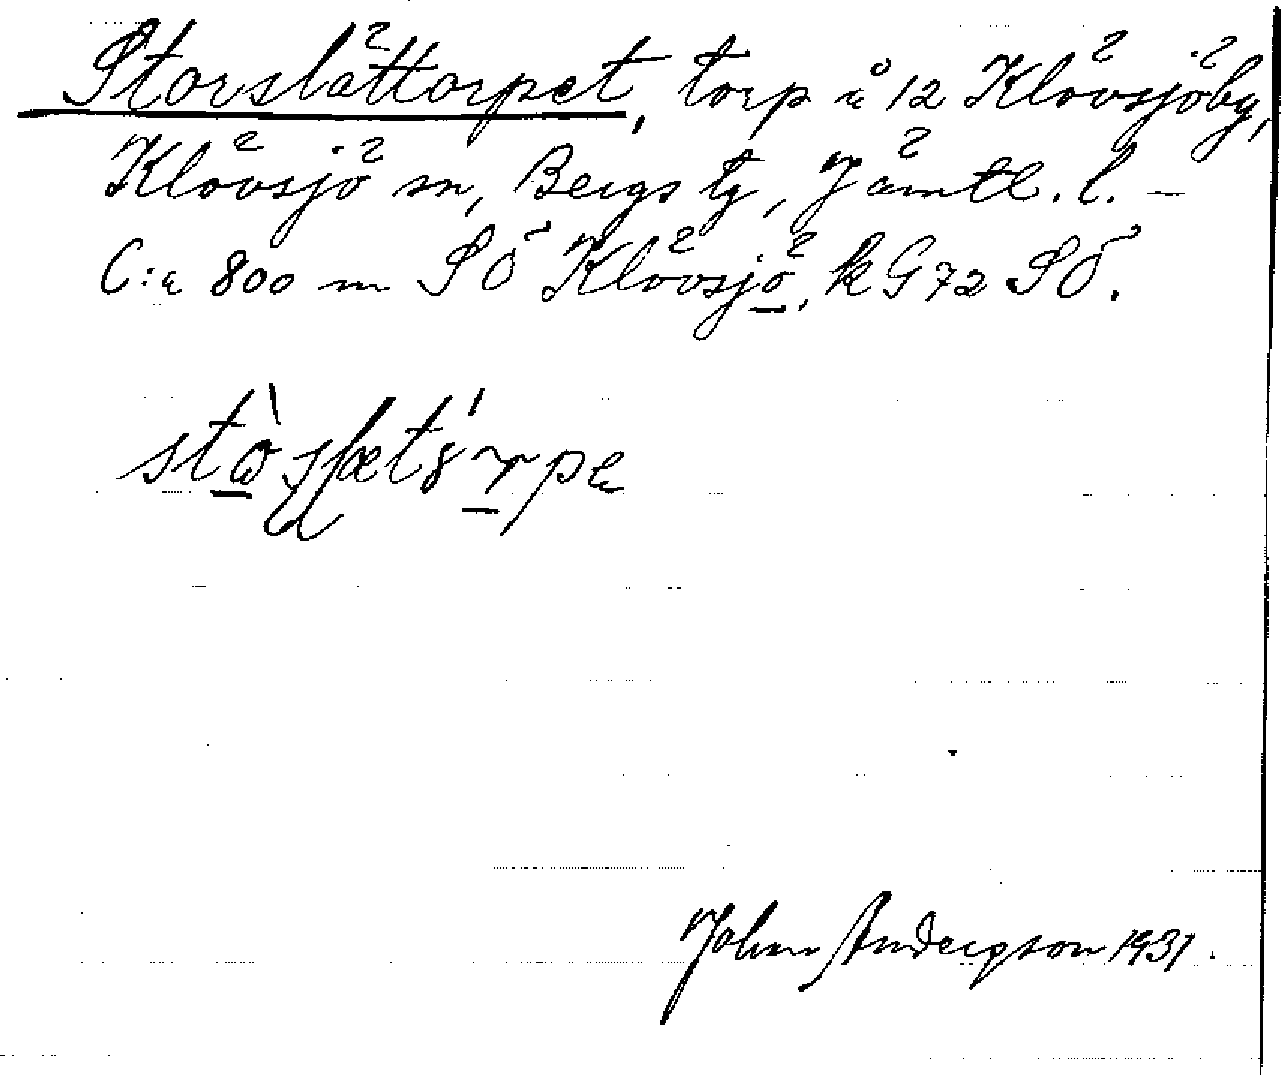 Storslättorpet, torp å 12 Klövsjöby,
Klövsjö sn, Bergs tg, Jämtl. l. –
C:a 800 m SÖ Klövsjö, k G 72 SÖ.
Johan Andersson 1931.